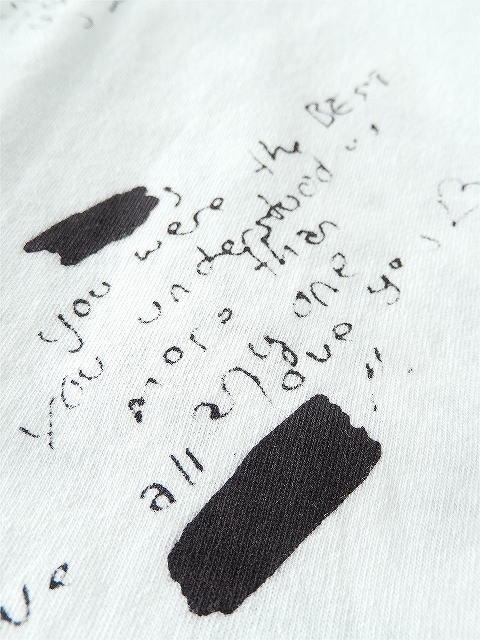 you were the BEST
You understood us
more than
any one
all love you ♡